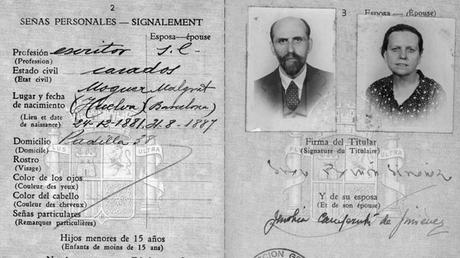 2
SEÑAS PERSONALES — SIGNALEMENT
Esposa—épouse
Profesión escritor S. L.
(Profession)
Estado civil casados
(Etat civil)
Moguer Malgrat
Lugar y fecha
de nacimiento (Huelva) (Barcelona)
(Lieu et date
de naissance) 24-12-1881 31-8-1887
Domicilio Padilla 38
(Domicile)
Rostro
(Visage)
Color de los ojos
(Couleur des yeux)
Color del cabello
(Couleur des cheveux)
Señas particulares
(Remarques particulières)
Hijos menores de 15 años
(Enfants de moins de 15 ans)
3
Esposo (Épouse)
Firma del Titular
(Signature du Titulaire)
Juan Ramón Jiménez
Y de su esposa
(Et de son épouse)
Zenobia Camprubí de Jiménez
PLUS ULTRA